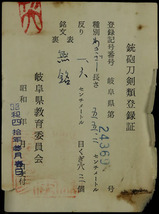 銃砲刀剣類登録証
登録記号番号
岐阜県第24363号
種別 わきざし
長さ 五五・二 センチメートル
反り 一・六 センチメートル
目くぎ穴 二個
銘文 表 無銘
裏
昭和四十
岐阜県教育委員会